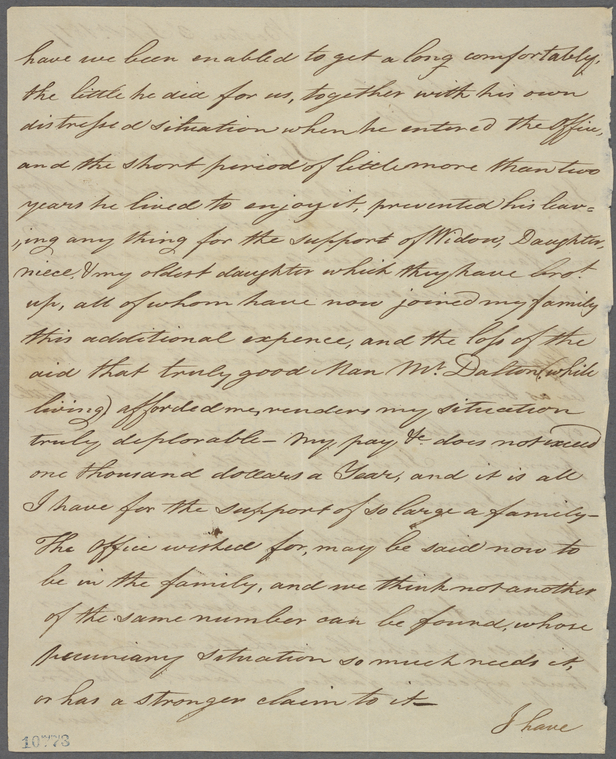 have we been enabled to get a long comfortably.
the little he did for us, together with his own
distressed situation when he entered the Office,
and the short period of little more than two
years he lived to enjoy it, prevented his leav=
"ing any thing for the support of Widow, Daughter,
niece, & my oldest daughter which they have brot
up, all of whom have now joined my family
this additional expence, and the loss of the
aid that truly good Man Mr. Dalton (while
living) afforded me, renders my situation
truly deplorable— My pay &c does not exceed
one thousand dollars a Year, and it is all
I have for the support of so large a family—
The Office wished for, may be said now to
be in the family, and we think not another
of the same number can be found, whose
pecuniary situation so much needs it,
or has a stronger claim to it—
I have
10773